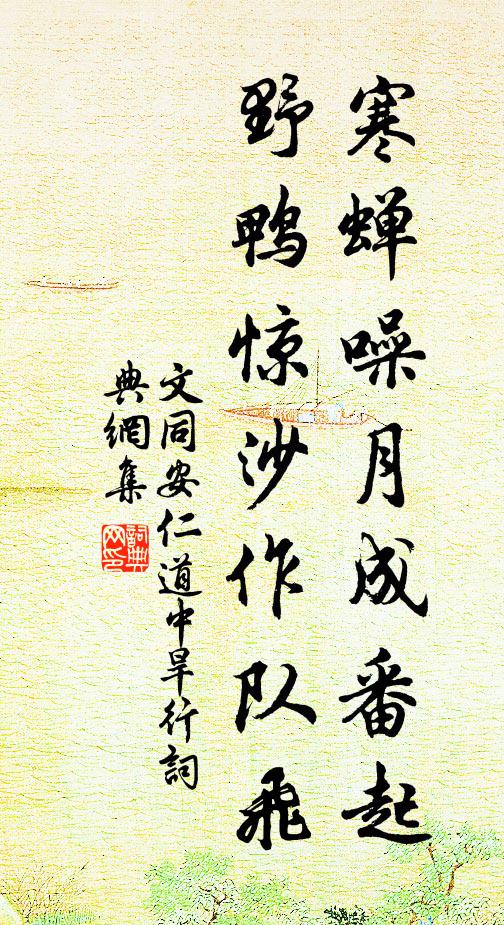 寒蝉噪月成番起
野鸭惊沙作队飛
文同安仁道中旱行詞
典網集
詞典
网印